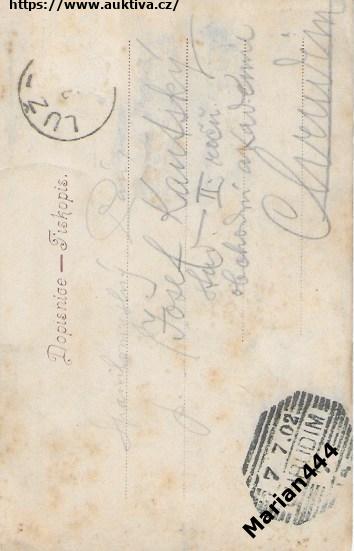 https://www.auktiva.cz/
LUŽ
Dopisnice — Tiskopis.
Pan
Josef Kautský
stud. — II. ročn.
obchodní akademie
Chrudim
7 7.02
CHRUDIM
Marian444